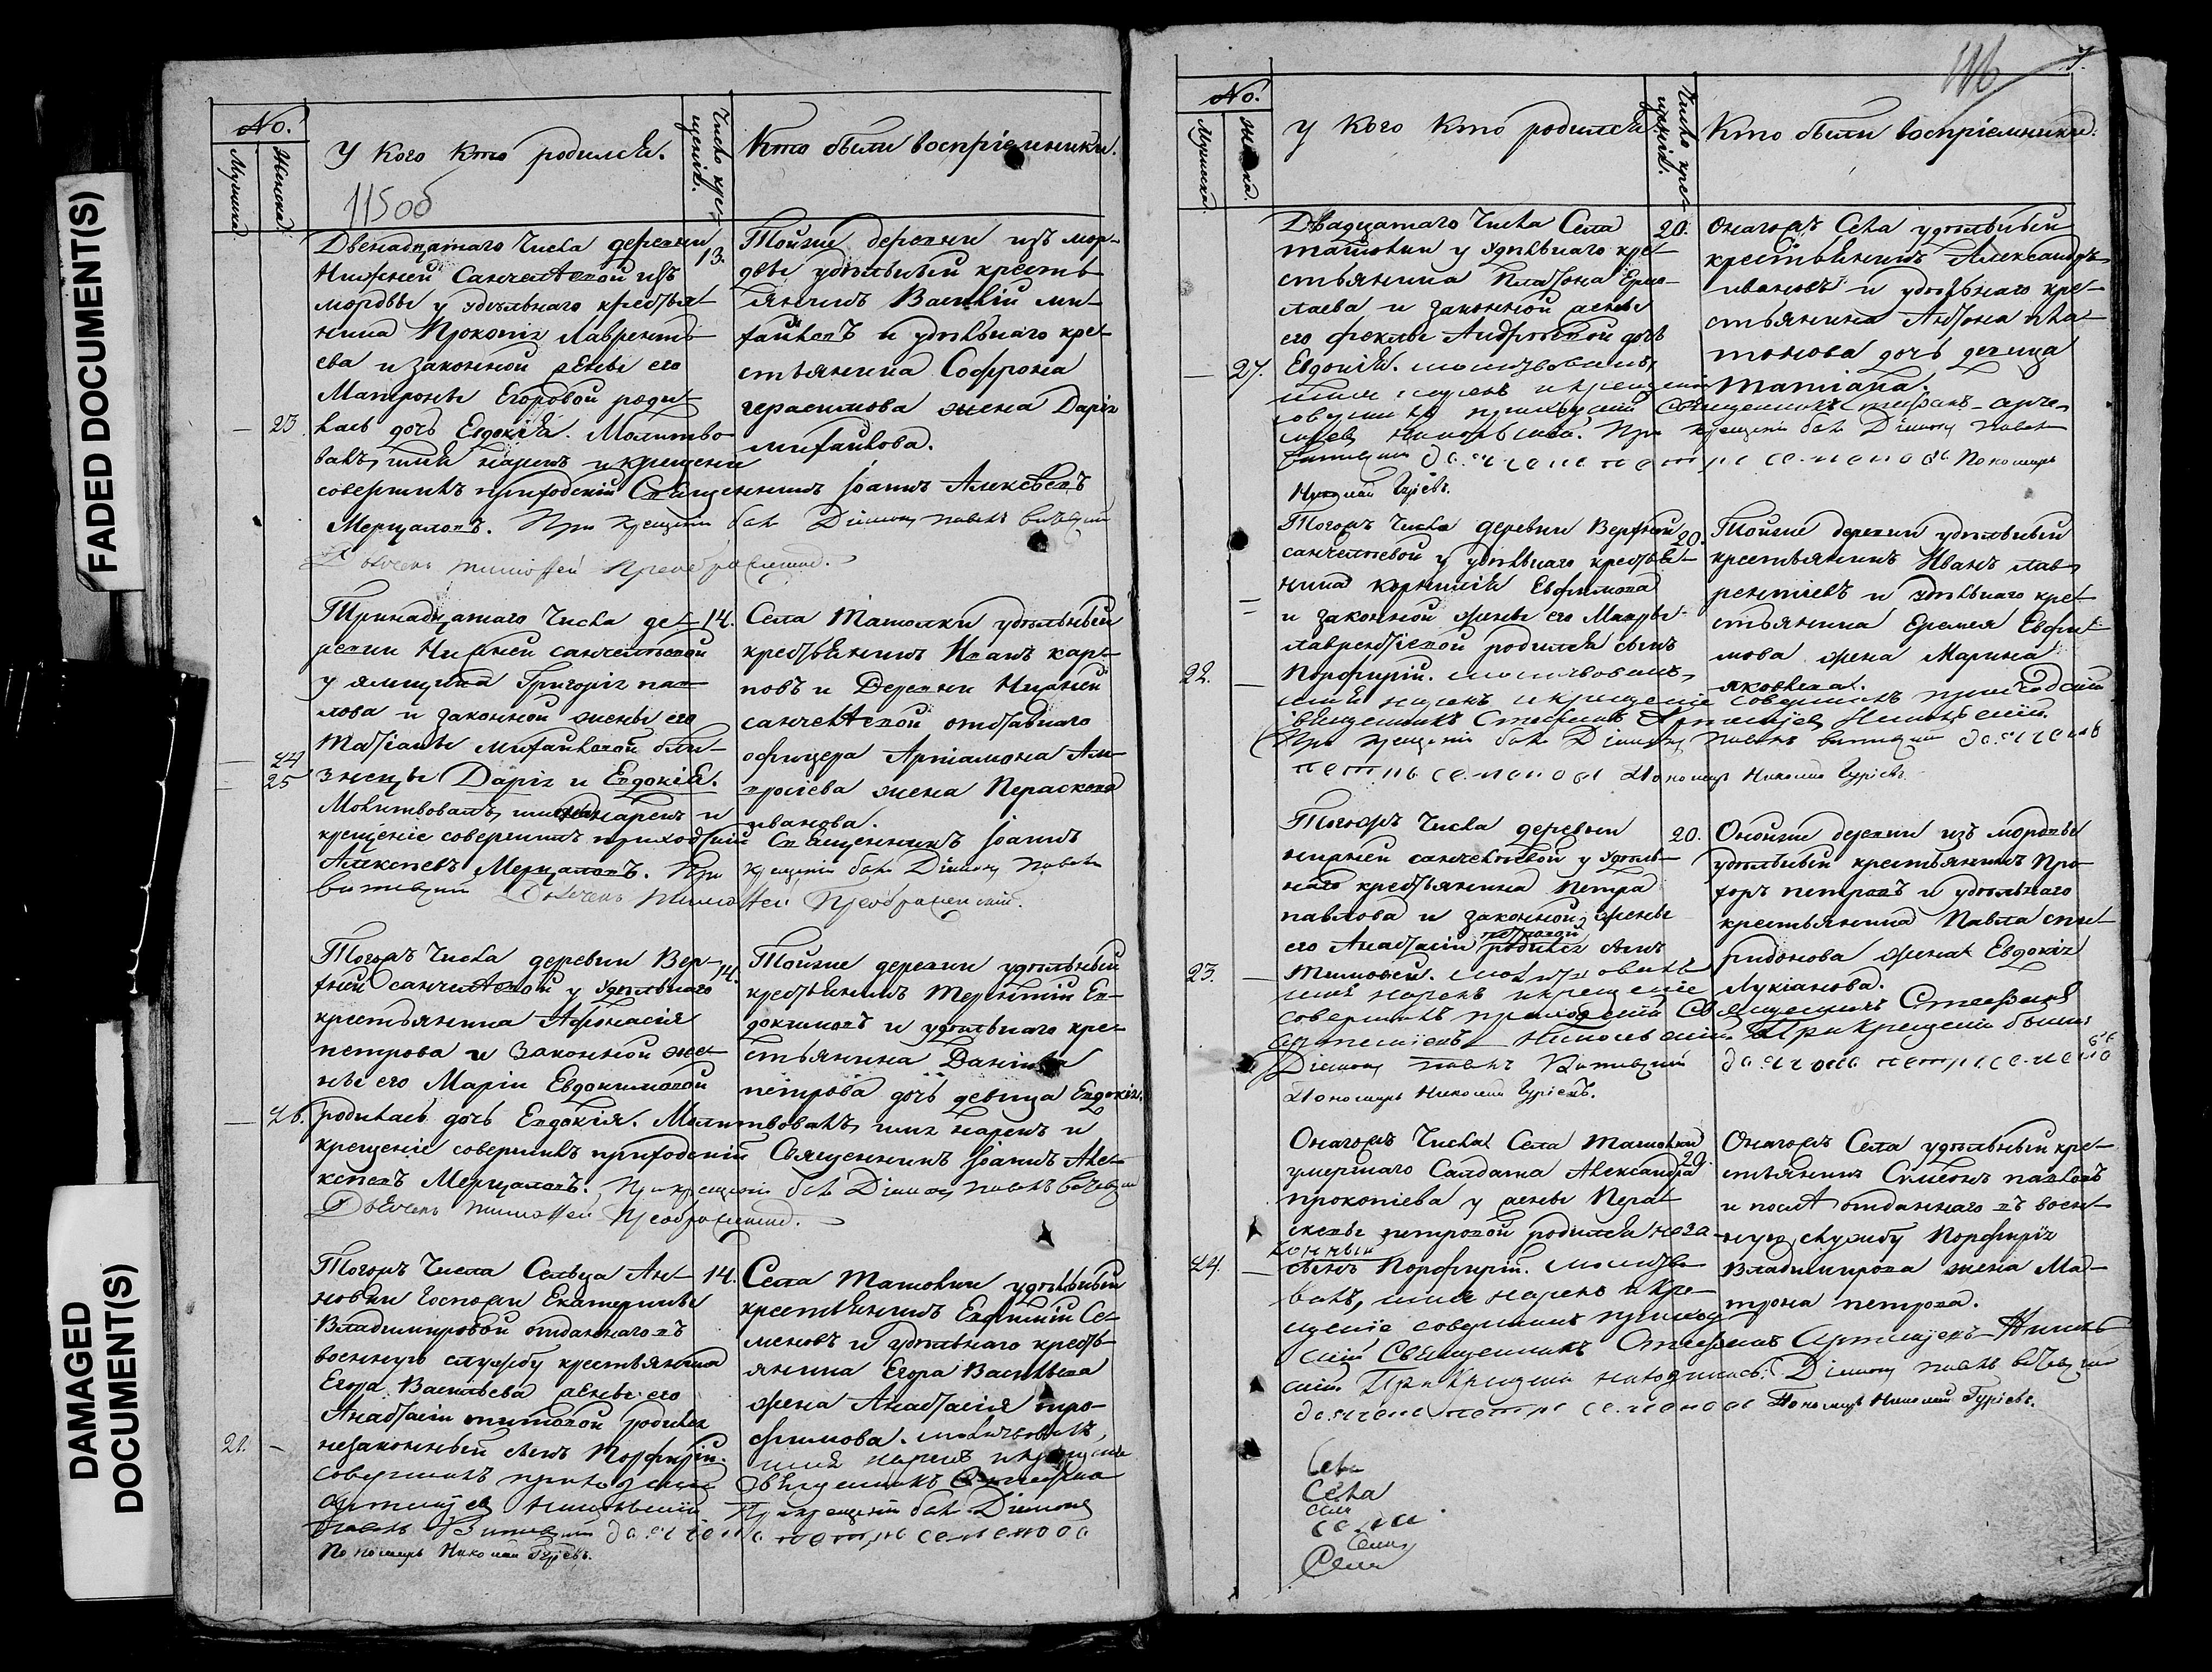 FADED DOCUMENT(S)
DAMAGED
DOCUMENT(S)
No.
Мужеска
Женска
У Кого Кто родился.
Число кре-
щенія.
Кто были воспріемники.
115 об
Двенадцатаго Числа деревни
Нижней Санчелѣевой изъ
мордвы у удѣльнаго крестья-
нина Прокопія Лавренть-
ева и законной женѣ его
Матроны Егоровой роди-
23. лась дочь Евдокія. Молитво-
валъ, имя нарекъ и крещеніе
совершилъ приходскій Священникъ Іоаннъ Алексѣевъ
Мерцаловъ. При крещеніи былъ Діаконъ Павелъ
Дьячекъ Тимоѳей Преображенскій.
13.
Тойже деревни изъ мор-
двы удѣльный кресть-
янинъ Василій Ми-
хайловъ и удѣльнаго кре-
стьянина Софрона
Герасимова жена Дарія
Михайлова.
Тринадцатаго Числа де-
ревни Нижней Санчелѣевой
у ямщика Григорія Пав-
лова и законной жены его
Татіаны Михайловой близ-
24
25 знецы Дарія и Евдокія.
Молитвовалъ, имена нарекъ и
крещеніе совершилъ приходскій Священникъ Іоаннъ
Алексѣевъ Мерцаловъ. При крещеніи былъ Діаконъ Павелъ
Дьячекъ Тимоѳей Преображенскій.
14.
Села Ташолки удѣльный
крестьянинъ Иванъ Кар-
повъ и Деревни Нижней
Санчелѣевой отставнаго
офицера Артамона Ам-
вросіева жена Пераскева
Иванова.
Тогожъ Числа деревни Вер-
хней Санчелѣевой у удѣльнаго
крестьянина Афонасія
Петрова и Законной же-
ны его Маріи Евдокимовой
26. родилась дочь Евдокія. Молитвовалъ, имя нарекъ и
крещеніе совершилъ приходскій Священникъ Іоаннъ Але-
ксѣевъ Мерцаловъ. При крещеніи былъ Діаконъ Павелъ
Дьячекъ Тимоѳей Преображенскій.
14.
Тойже деревни удѣльный
крестьянинъ Терентій Ев-
докимовъ и удѣльнаго кре-
стьянина Данила
Петрова дочь девица Евдокія.
Тогожъ Числа Сельца Ан-
новки Госпожи Екатерины
Владимировой отданнаго въ
военную службу крестьянина
Егора Васильева жены его
Анастасіи Титовой родился
21. незаконный сынъ Порфирій.
совершилъ приходскій Священникъ
Никольскій При крещеніи былъ Діаконъ
Павелъ дьячекъ Петръ Семеновъ
Пономарь Николай Гурьевъ.
14.
Села Ташолки удѣльный
крестьянинъ Евфимій Се-
меновъ и удѣльнаго кресть-
янина Егора Васильева
жена Анастасія Тро-
фимова. Молитвовалъ,
имя нарекъ и крещеніе
116
7.
No.
Мужеска
Женска
У Кого Кто родился
Число кре-
щенія.
Кто были воспріемники.
Двадцатаго Числа Села
Ташолки у удѣльнаго кре-
стьянина Платона Ермо-
лаева и законной жены
его Феклы Андреевой дочь
27. Евдокія. Молитвовалъ,
имя нарекъ и крещеніе
совершилъ приходскій Священникъ Стефанъ Арте-
міевъ Никольскій. При крещеніи былъ Діаконъ Павелъ
дьячекъ Петръ Семеновъ Пономарь
Николай Гурьевъ.
20.
Онагожъ Села удѣльный
крестьянинъ Александръ
Ивановъ и удѣльнаго кре-
стьянина Антона Пла-
тонова дочь девица
Татіана.
Тогожъ Числа деревни Верхней
Санчелѣевой у удѣльнаго крестья-
нина Корнилія Евфимова
и законной жены его Мавры
Лаврентіевой родился сынъ
22. Порфирій. Молитвовалъ,
имя нарекъ и крещеніе совершилъ приходскій
Священникъ Стефанъ Артеміевъ Никольскій.
При крещеніи былъ Діаконъ Павелъ дьячекъ
Петръ Семеновъ Пономарь Николай Гурьевъ.
20.
Тойже деревни удѣльный
крестьянинъ Иванъ Лав-
рентіевъ и удѣльнаго кре-
стьянина Еремея Евфи-
мова жена Марина
Яковлева.
Тогожъ Числа деревни
нижней Санчелѣевой у удѣль-
наго крестьянина Петра
Павлова и законной жены
его Анастасіи Петровой родился сынъ
23. Тимоѳей. Молитвовалъ
имя нарекъ и крещеніе
совершилъ приходскій Священникъ Стефанъ
Артеміевъ Никольскій. При крещеніи были
Діаконъ Павелъ дьячекъ Петръ Семеновъ
Пономарь Николай Гурьевъ.
20.
Онойже деревни изъ мордвы
удѣльный крестьянинъ Про-
хоръ Петровъ и удѣльнаго
крестьянина Павла Спи-
ридонова жена Евдокія
Лукіанова.
Онагожъ Числа Села Ташолки
умершаго Салдата Александра
Прокопіева у жены Пера-
скевы Петровой родился неза-
конный
24. сынъ Порфирій. Молитво-
валъ, имя нарекъ и кре-
щеніе совершилъ приход-
скій Священникъ Стефанъ Артеміевъ Николь-
скій. При крещеніи находились: Діаконъ Павелъ
дьячекъ Петръ Семеновъ Пономарь Николай Гурьевъ.
20.
Онагожъ Села удѣльный кре-
стьянинъ Симеонъ Павловъ
и послѣ отданнаго въ воен-
ную службу Порфирія
Владимирова жена Ма-
трона Петрова.
Села
Села
села
села
Села
Села